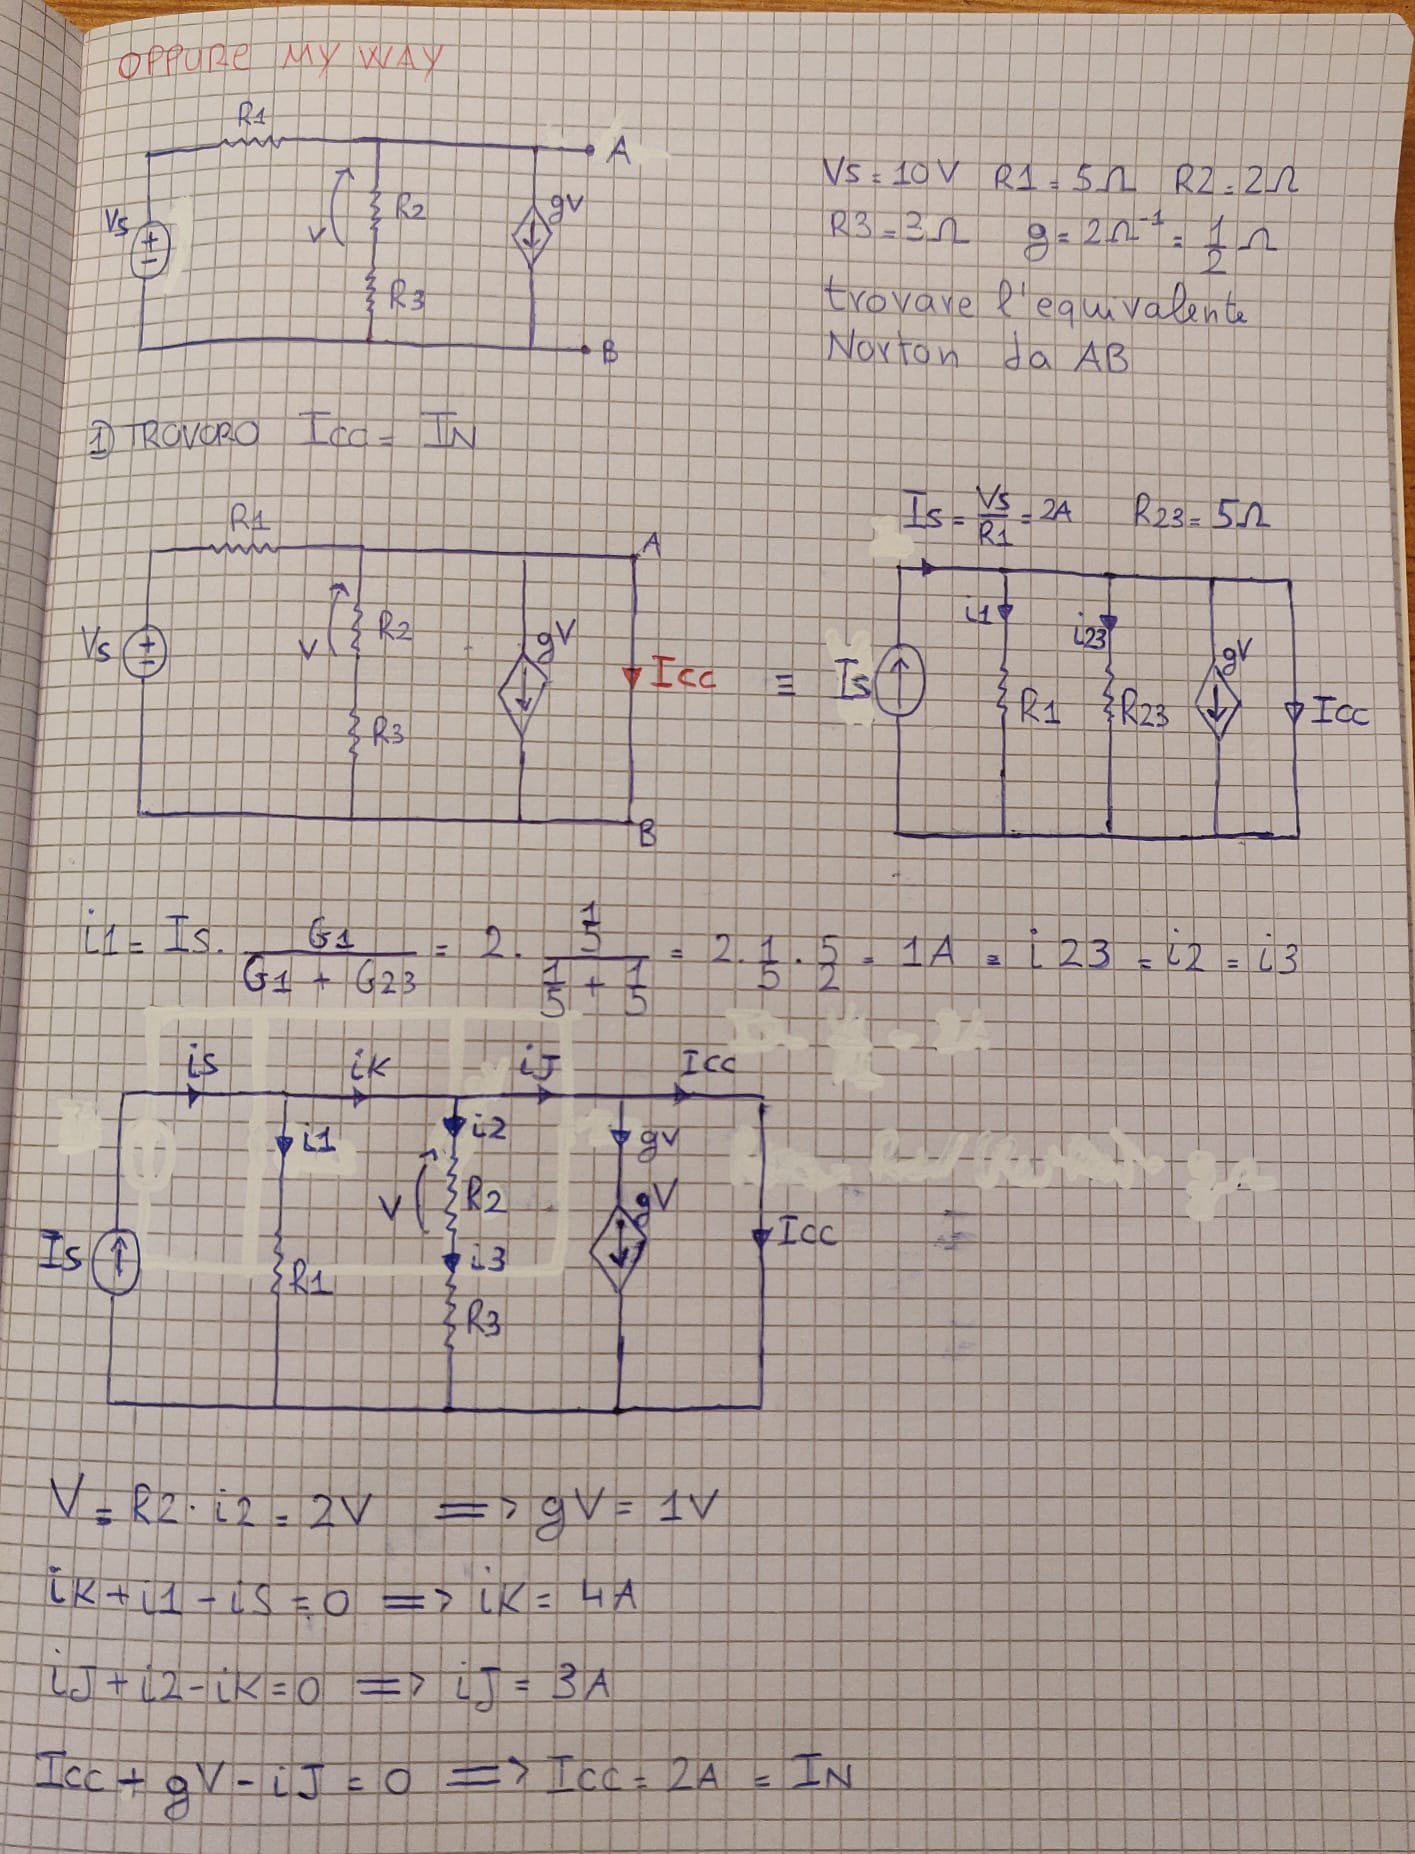 OPPURE MY WAY
R1
A
Vs
V
R2
gV
R3
B
Vs = 10V R1 = 5Ω R2 = 2Ω
R3 = 3Ω g = 2Ω⁻¹ = 1/2 Ω
trovare l'equivalente
Norton da AB
1) TROVORO Icc = IN
R1
A
Vs
V
R2
gV
Icc
R3
B
≡
Is = Vs/R1 = 2A R23 = 5Ω
i1
i23
gV
Is
R1
R23
Icc
i1 = Is · G1/(G1 + G23) = 2 · (1/5)/(1/5 + 1/5) = 2 · 1/5 · 5/2 = 1A = i23 = i2 = i3
is
iK
iJ
Icc
i1
i2
gV
V
R2
gV
Is
i3
Icc
R1
R3
V = R2 · i2 = 2V ⟹ gV = 1V
iK + i1 - iS = 0 ⟹ iK = 4A
iJ + i2 - iK = 0 ⟹ iJ = 3A
Icc + gV - iJ = 0 ⟹ Icc = 2A = IN